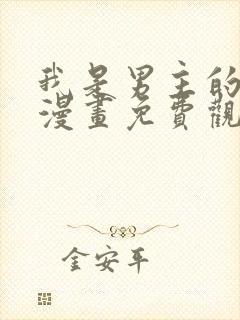 我是男主的
漫畫免費觀
金安平